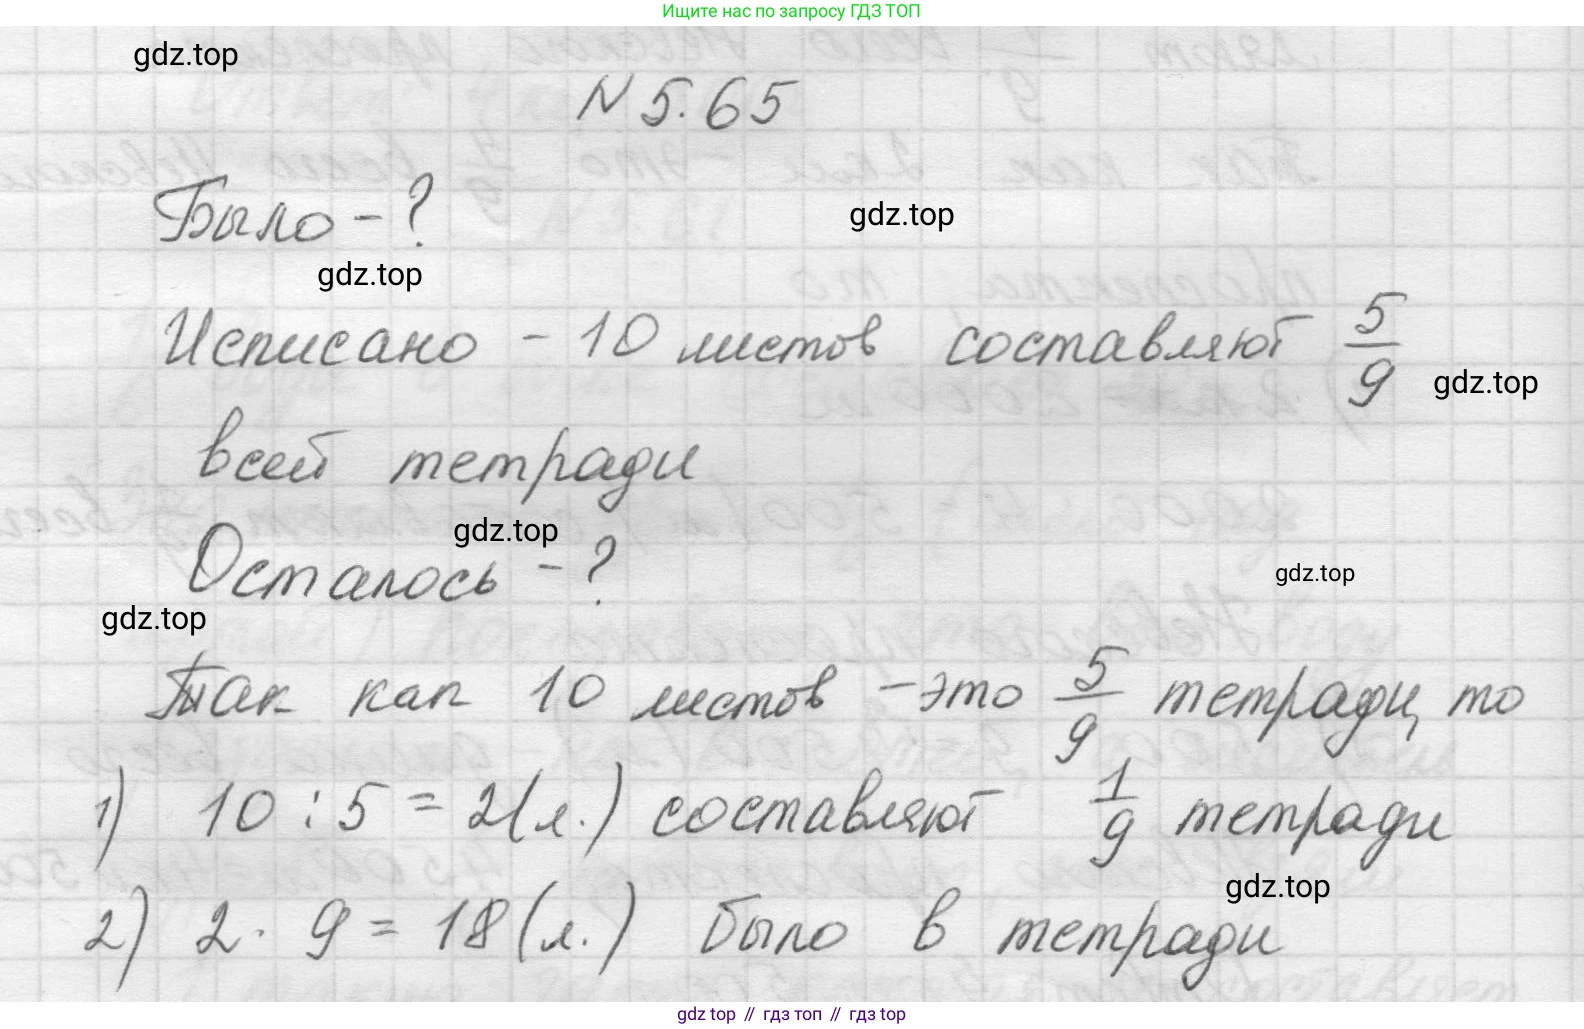 Ищите нас по запросу ГДЗ ТОП
gdz.top
N 5.65
Было - ?
gdz.top
gdz.top
Исписано - 10 листов составляют 5/9
gdz.top
всей тетради
gdz.top
Осталось - ?
gdz.top
gdz.top
Так как 10 листов - это 5/9 тетради, то
1) 10 : 5 = 2 (л.) составляют 1/9 тетради
gdz.top
2) 2 · 9 = 18 (л.) было в тетради
gdz top // гдз топ // гдз top